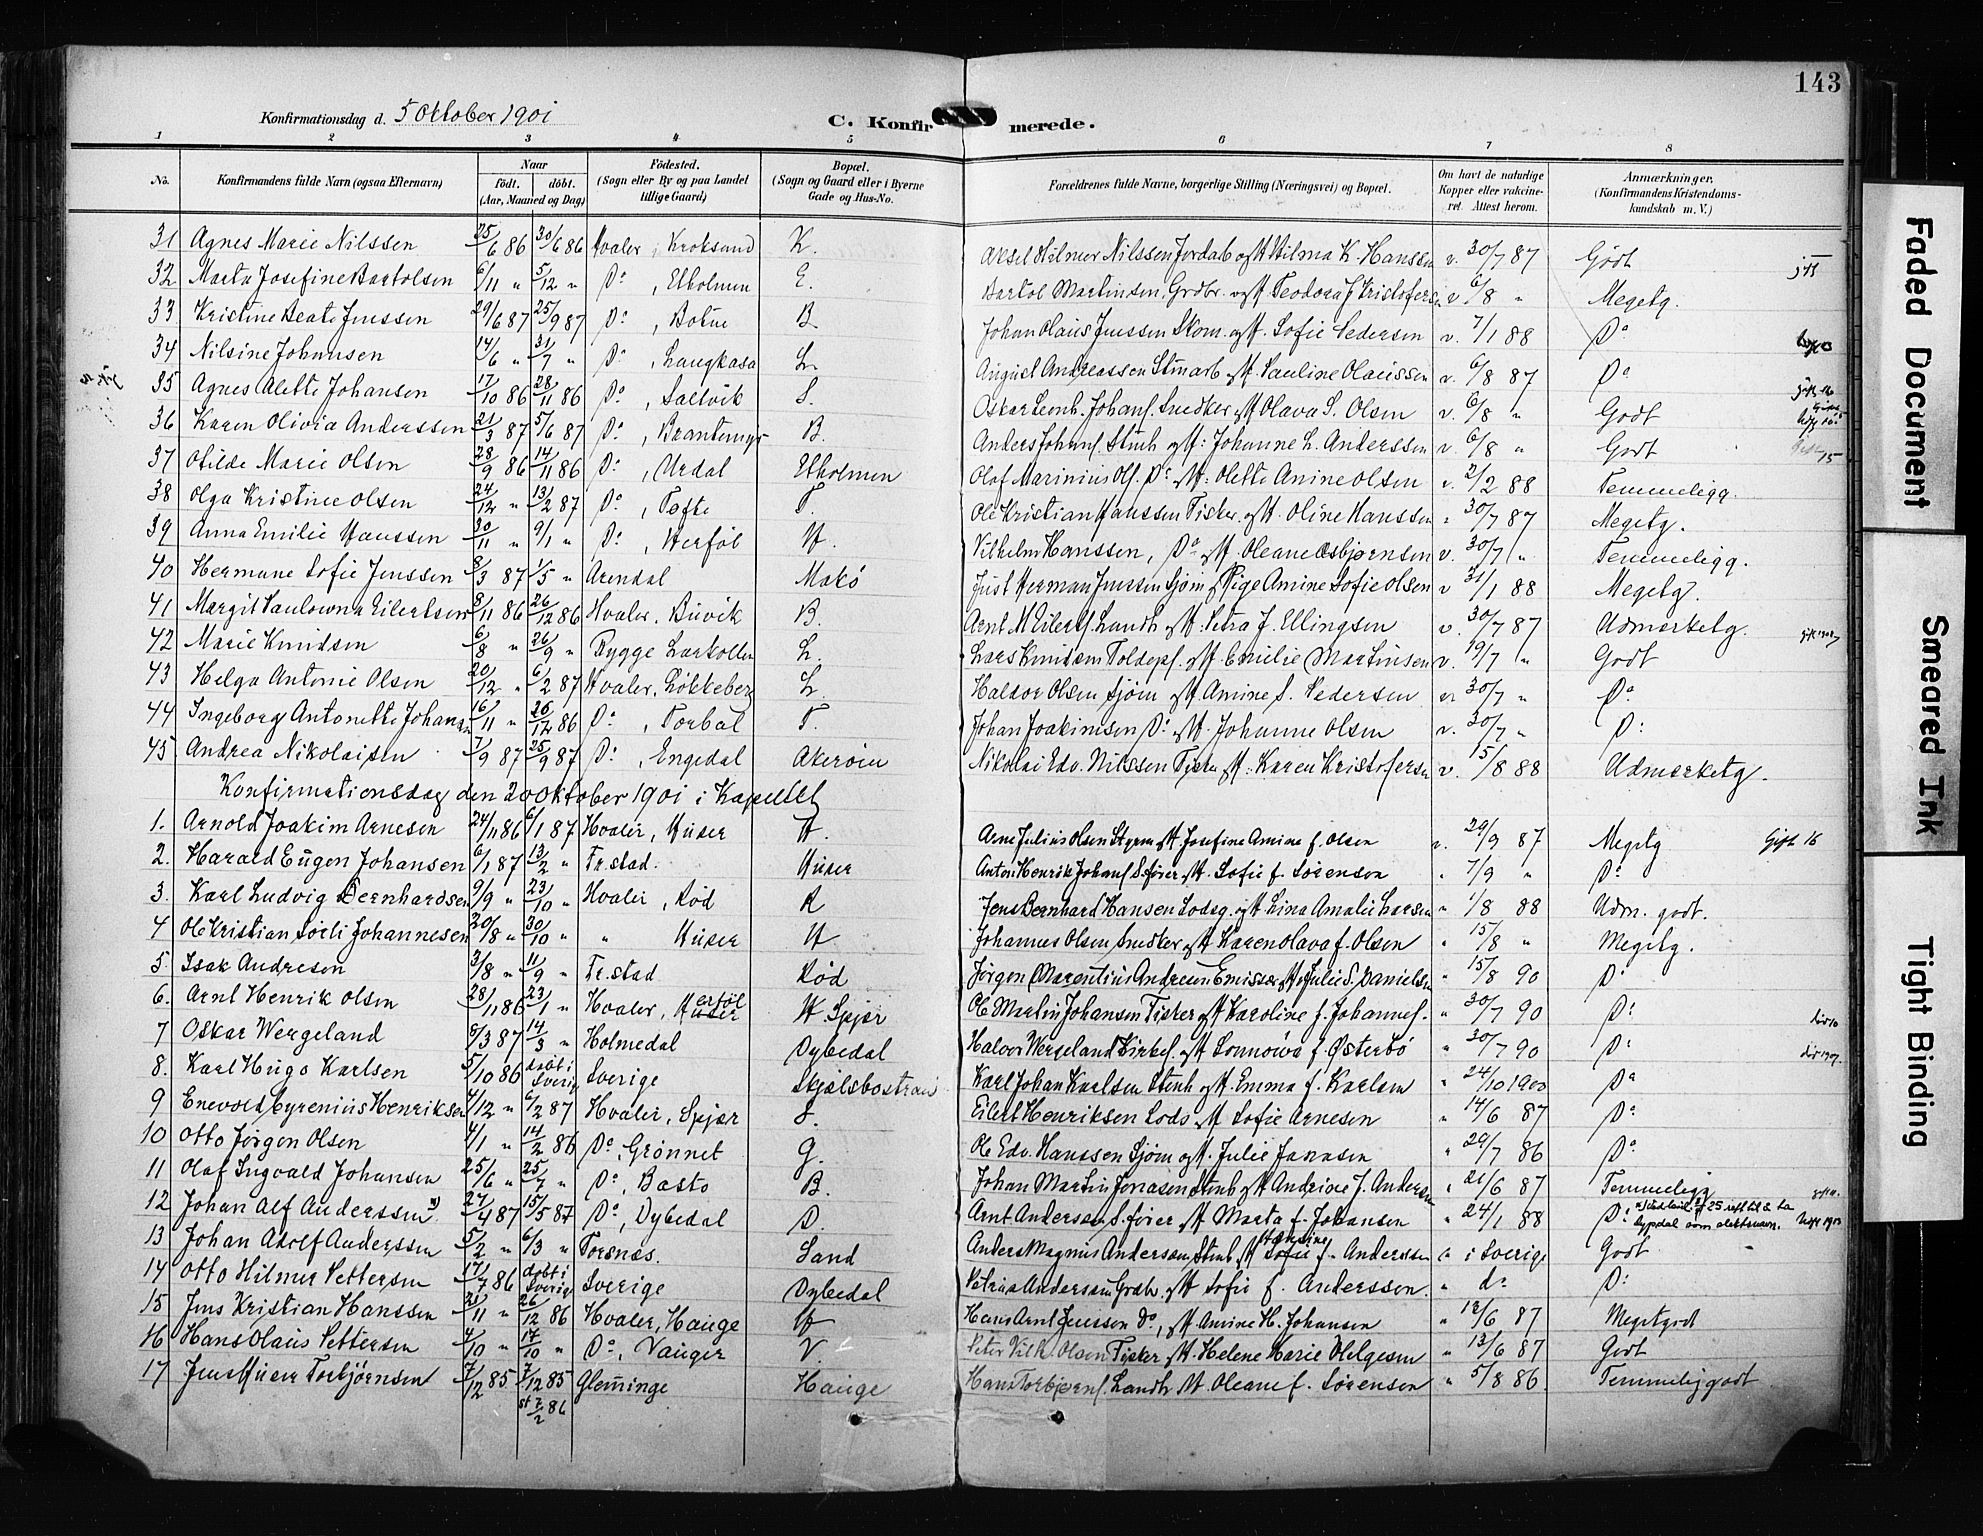 143
Konfirmationsdag d. 5 Oktober 1901
C. Konfirmerede.
1 2 3 4 5 6 7 8
No. Konfirmandens fulde Navn (ogsaa Efternavn) Naar født. døbt. (Aar, Maaned og Dag) Fødested. (Sogn eller By og paa Landet tillige Gaard) Bopæl. (Sogn og Gaard eller i Byerne Gade og Hus-No. Forældrenes fulde Navne, borgerlige Stilling (Næringsvei) og Bopæl. Om havt de naturlige Kopper eller vaccineret. Attest herom. Anmærkninger. (Konfirmandens Kristendomskundskab m. V.)
31 Agnes Marie Nilssen 25/6 86 30/6 86 Hvaler, Kroksund K. Aksel Hilmer Nilssen Jordarb og H. Hilma K. Hanssen v. 30/7 87 Godt gift
32 Marta Josefine Bartolsen 6/11 " 5/12 " Do, Etholmen E. Bartol Martinsen, Grdbr. og H. Teodora J Kristofers v 6/8 " Megetg.
33 Kristine Beate Jenssen 29/6 87 25/9 87 Do, Botne B Johan Olaus Jenssen Skom. og H. Sofie Pedersen v. 7/1 88 Do
34 Nilsine Johansen 14/6 " 31/7 " Do, Langkasa L. August Andreassen Stenarb og H. Pauline Olaussen v. 6/8 87 Do
35 Agnes Alette Johansen 17/10 86 28/11 86 Do, Saltvik S. Oskar Leonh. Johans. Snedker og H Olava S. Olsen v. 6/8 " Godt
36 Karen Olivia Anderssen 21/3 87 5/6 87 Do, Brentemyr B. Anders Johans. Stenh og H: Johanne L. Anderssen v 6/8 " Godt
37 Otilde Marie Olsen 28/9 86 14/11 86 Do, Urdal Etholmen Olaf Marinius Ols. Do og H: Olette Amine Olsen v. 2/2 88 Temmeligg.
38 Olga Kristine Olsen 24/12 " 13/2 87 Do, Tofte T. Ole Kristian Hanssen Fisker. og H. Oline Hanssen " 30/7 87 Megetg.
39 Anna Emilie Hanssen 30/11 " 9/1 " Do, Herföl H. Vilhelm Hanssen, Do og H. Oleane Asbjørnsen v. 30/7 " Temmeligg.
40 Hermane Sofie Jenssen 8/3 87 1/5 " Arendal Makö Just Herman Jenssen Sjøm og Pige Amine Sofie Olsen v 31/1 88 Megetg.
41 Margit Paulowna Eilertsen 8/11 86 26/12 86 Hvaler. Buvik B. Arnt M Eilerts. Landh og H: Petra J. Ellingsen v. 30/7 87 Udmerketg.
42 Marie Knudsen 6/8 " 26/9 " Rygge Larkollen L. Lars Knudsen Toldopf. og H Emilie Martinsen v. 19/7 " Godt
43 Helga Antonie Olsen 20/12 " 6/2 87 Hvaler, Løkkeberg L. Haldor Olsen Sjøm og H Amine S. Pedersen v. 30/7 " Do
44 Ingeborg Antonette Johans 16/11 " 26/12 86 Do, Torbal T. Johan Joakimsen Do og H. Johanne Olsen v. 30/7 " Do
45 Andrea Nikolaisen 7/9 87 25/9 87 Do, Engedal Akerøen Nikolai Edv. Nilssen Fisker og H: Karen Kristofersen v. 15/8 88 Udmerketg.
Konfirmationsdag den 20 Oktober 1901 i Kapellet
1. Arnold Joakim Arnesen 24/11 86 6/1 87 Hvaler, Huser H. Arne Julius Olsen Styrm og H Josefine Amine f. Olsen v. 29/9 87 Megetg Gift 16
2. Harald Eugen Johansen 6/1 87 13/2 " Fr.stad. Huser Anton Henrik Johans S.fører og H. Sofie f. Sørensen " 7/9 " Do
3. Karl Ludvig Bernhardsen 9/9 " 23/10 " Hvaler, Rød R Jens Bernhard Hansen Lodsg. og H Lina Amalie Larsen " 1/8 88 Udm. godt.
4 Ole Kristian Sørli Johannesen 20/8 " 30/10 " " Huser H Johannes Olsen, Snedker og H Karen Olava f. Olsen " 15/8 " Megetg.
5. Isak Andresen 3/8 " 11/9 " Fr.stad Rød Jørgen Marentius Andresen Emissær og H Julie S. Danielsen " 15/8 90 Do
6. Arnt Henrik Olsen 28/11 86 23/1 " Hvaler, Herföl H. Spjær Ole Martin Johansen Fisker og H Karoline f. Johannes. " 30/7 90 Do
7 Oskar Wergeland 8/3 87 14/3 " Holmedal Dybedal Halvor Wergeland Kirkes. og H Sonnøva f Østerbö " 30/7 90 Do
8. Karl Hugo Karlsen 5/10 86 døbt i Sverig Sverige Skjælsbostrand Karl Johan Karlsen Stenh og H. Emma f. Karlsen " 24/10 1900 Do
9 Enevold Cyrenius Henriksen 4/12 " 6/2 87 Hvaler, Spjær S. Eilert Henriksen Lods og H Sofie Arnesen " 14/6 87 Do
10 Otto Jørgen Olsen 4/1 " 14/2 86 Do, Grønnet G. Ole Edv. Hanssen Sjøm og H. Julie Jansen " 29/7 86 Do
11 Olaf Ingvald Johansen 25/6 " 25/7 " Do, Basto B. Johan Martin Jonasen Stenh og H Andrine J. Andersen " 21/6 87 Temmeligg
12 Johan Alf Anderssen 27/4 87 15/5 87 Do, Dybedal D. Arnt Anderssen S.fører og H Marta f. Johansen " 24/1 88 Do
13 Johan Adolf Anderssen 5/2 " 6/3 " Torsnæs. Sand Anders Magnus Anderssen, Stenh og H f. Anderssen " i Sverige Godt
14 Otto Hilmer Pettersen 17/7 86 døbt i Sverig Sverige Dybedal Petrus Anderssen Grdbr. og H Sofie f. Anderssen. " do Do
15 Jens Kristian Hanssen 21/11 " 26/12 86 Hvaler, Hauge H Hans Arnt Jenssen Do, og H. Amine H. Johansen " 12/6 87 Megetgodt
16 Hans Olaus Pettersen 4/10 " 17/10 " Do, Vauger V. Peter Vilh. Olsen Fisker og H. Helene Marie Helgesen " 13/6 87 Godt
17 Jens Huser Torbjørnsen 7/12 85 7/12 85 st 2/2 86 Glemminge Hauge Hans Torbjørns. Landh og H Oleane f. Sørensen " 5/8 86 Temmeliggodt
Faded Document
Smeared Ink
Tight Binding